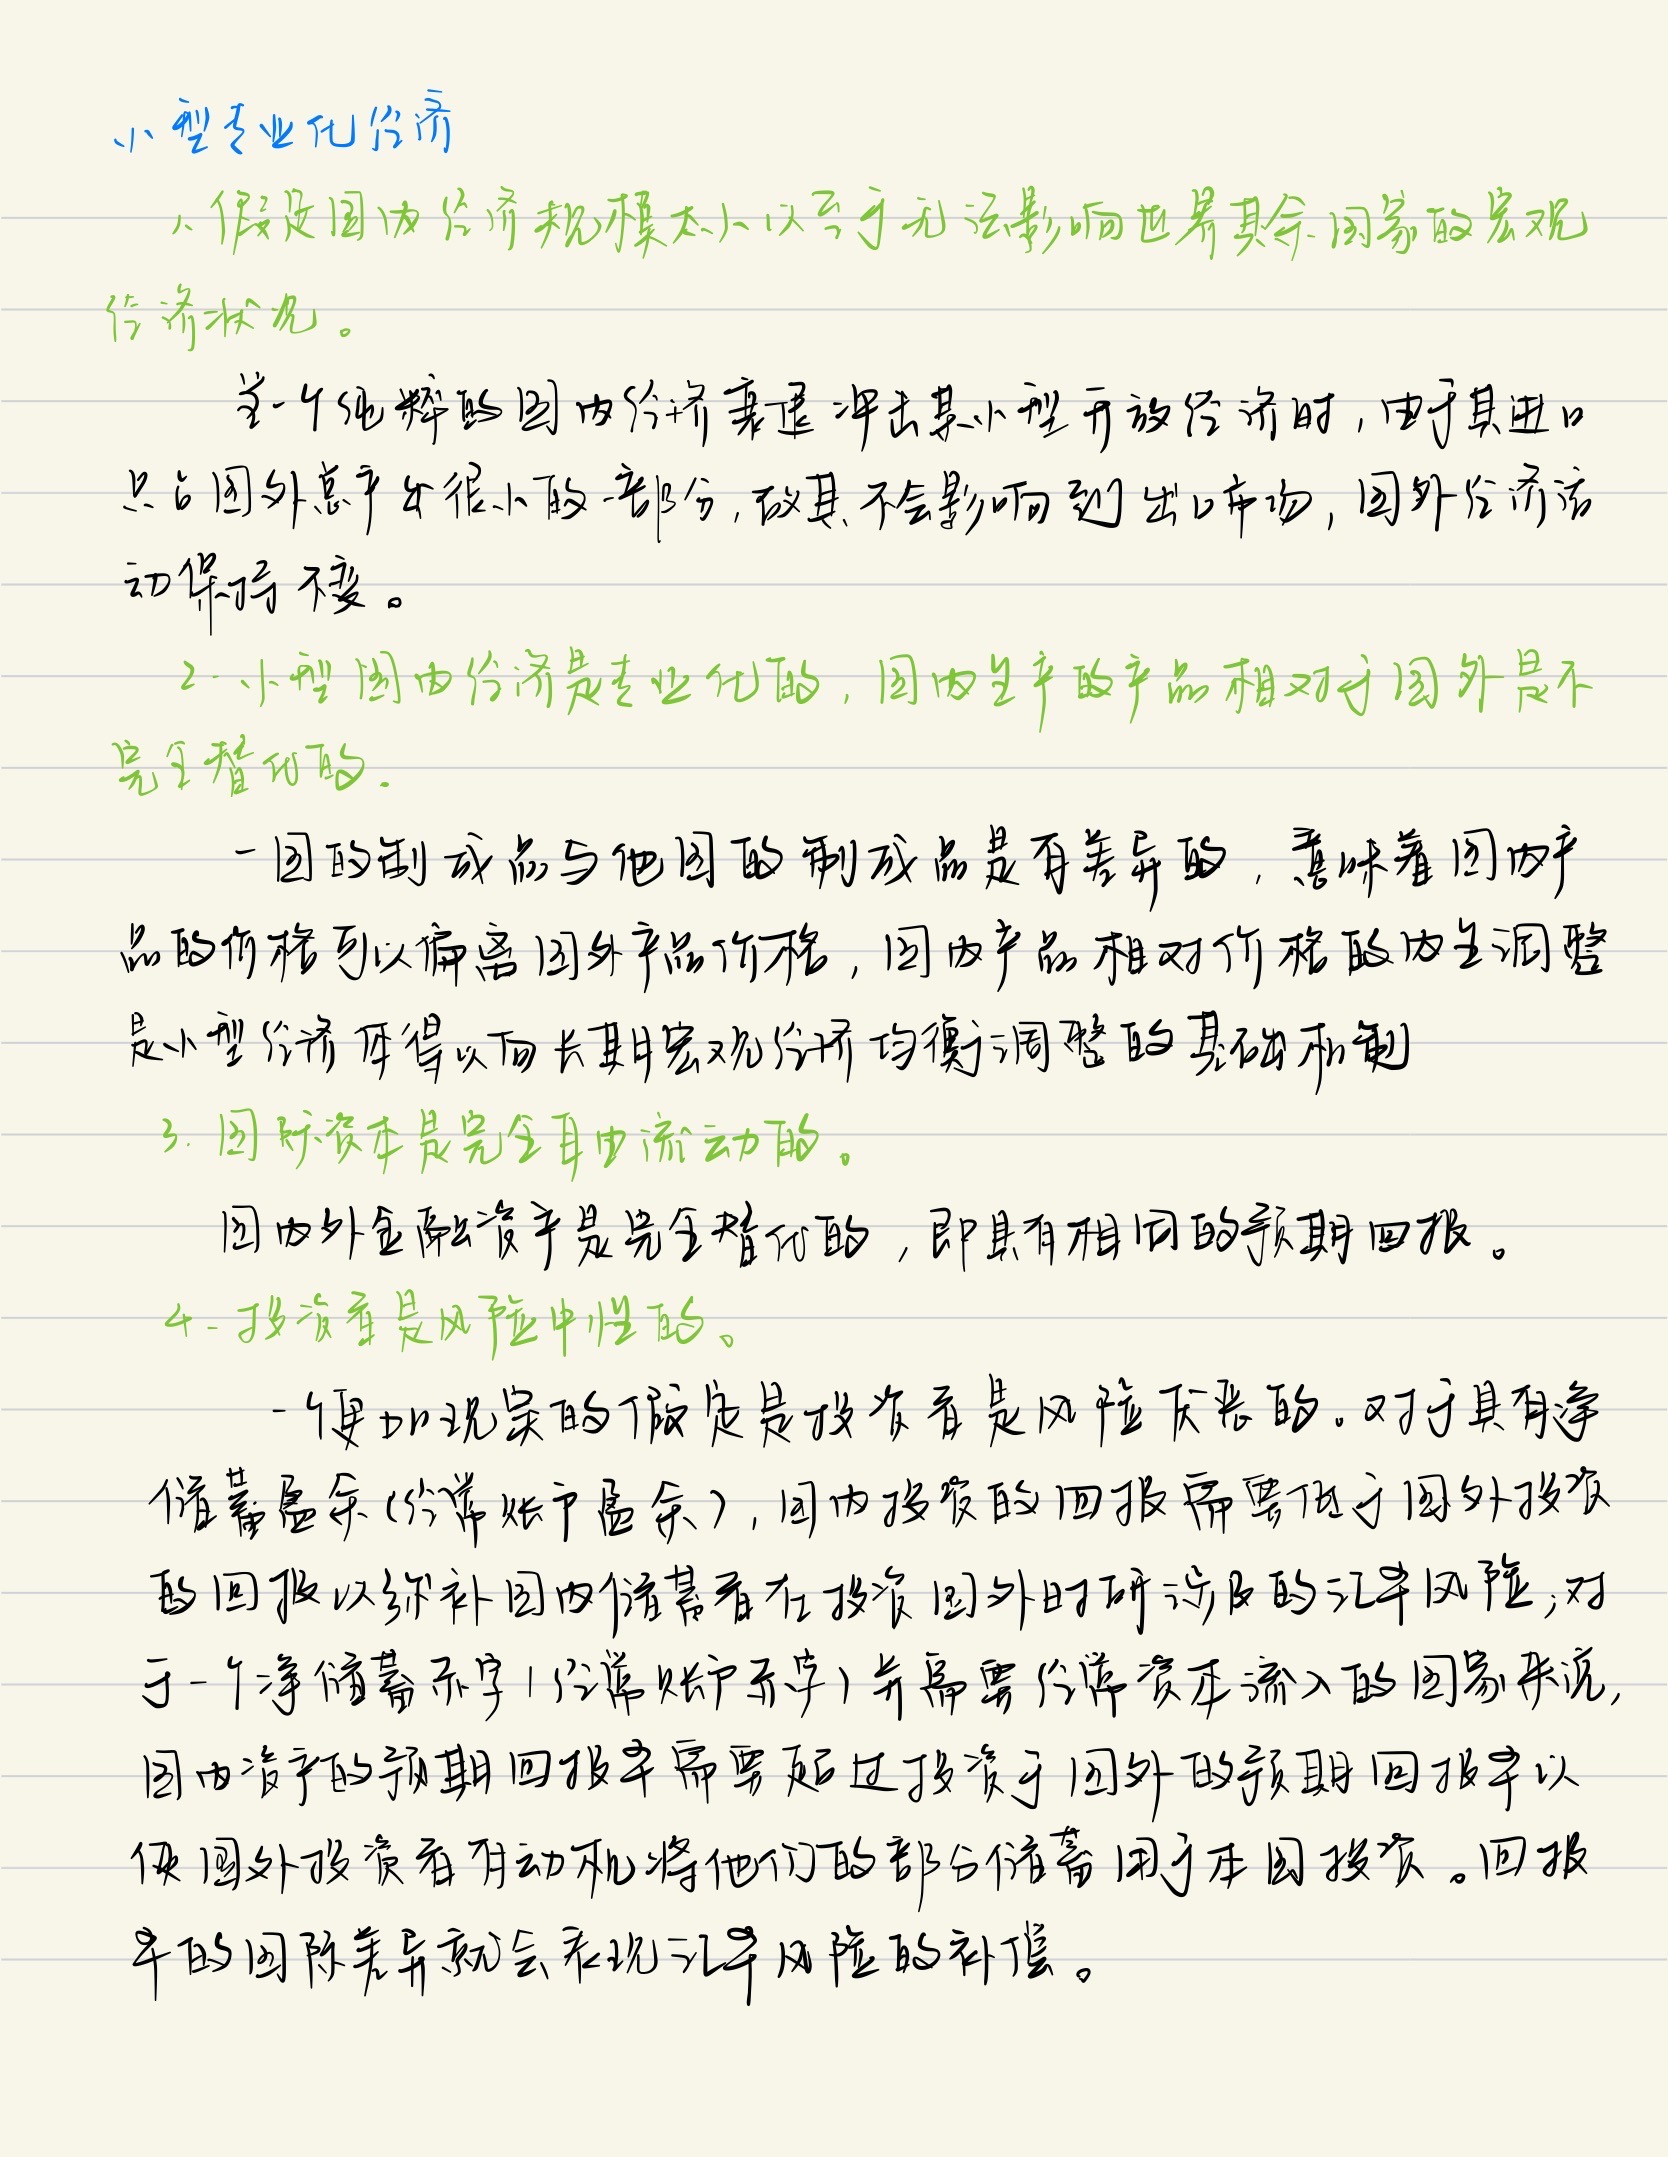 小型专业化经济
1. 假定国内经济规模太小以至于无法影响世界其余国家的宏观
经济状况。
当一个纯粹的国内经济衰退冲击某小型开放经济时，由于其进口
只占国外总产出很小的一部分，故其不会影响到出口市场，国外经济活
动保持不变。
2. 小型国内经济是专业化的，国内生产的产品相对于国外是不
完全替代的.
一国的制成品与他国的制成品是有差异的，意味着国内产
品的价格可以偏离国外产品价格，国内产品相对价格的内生调整
是小型经济体得以向长期宏观经济均衡调整的基础机制
3. 国际资本是完全自由流动的。
国内外金融资产是完全替代的，即具有相同的预期回报。
4. 投资者是风险中性的。
一个更加现实的假定是投资者是风险厌恶的。对于具有净
储蓄盈余(经常账户盈余)，国内投资的回报需要低于国外投资
的回报以弥补国内储蓄者在投资国外时所涉及的汇率风险;对
于一个净储蓄赤字(经常账户赤字)并需要经常资本流入的国家来说,
国内资产的预期回报率需要超过投资于国外的预期回报率以
使国外投资者有动机将他们的部分储蓄用于本国投资。回报
率的国际差异就会表现汇率风险的补偿。